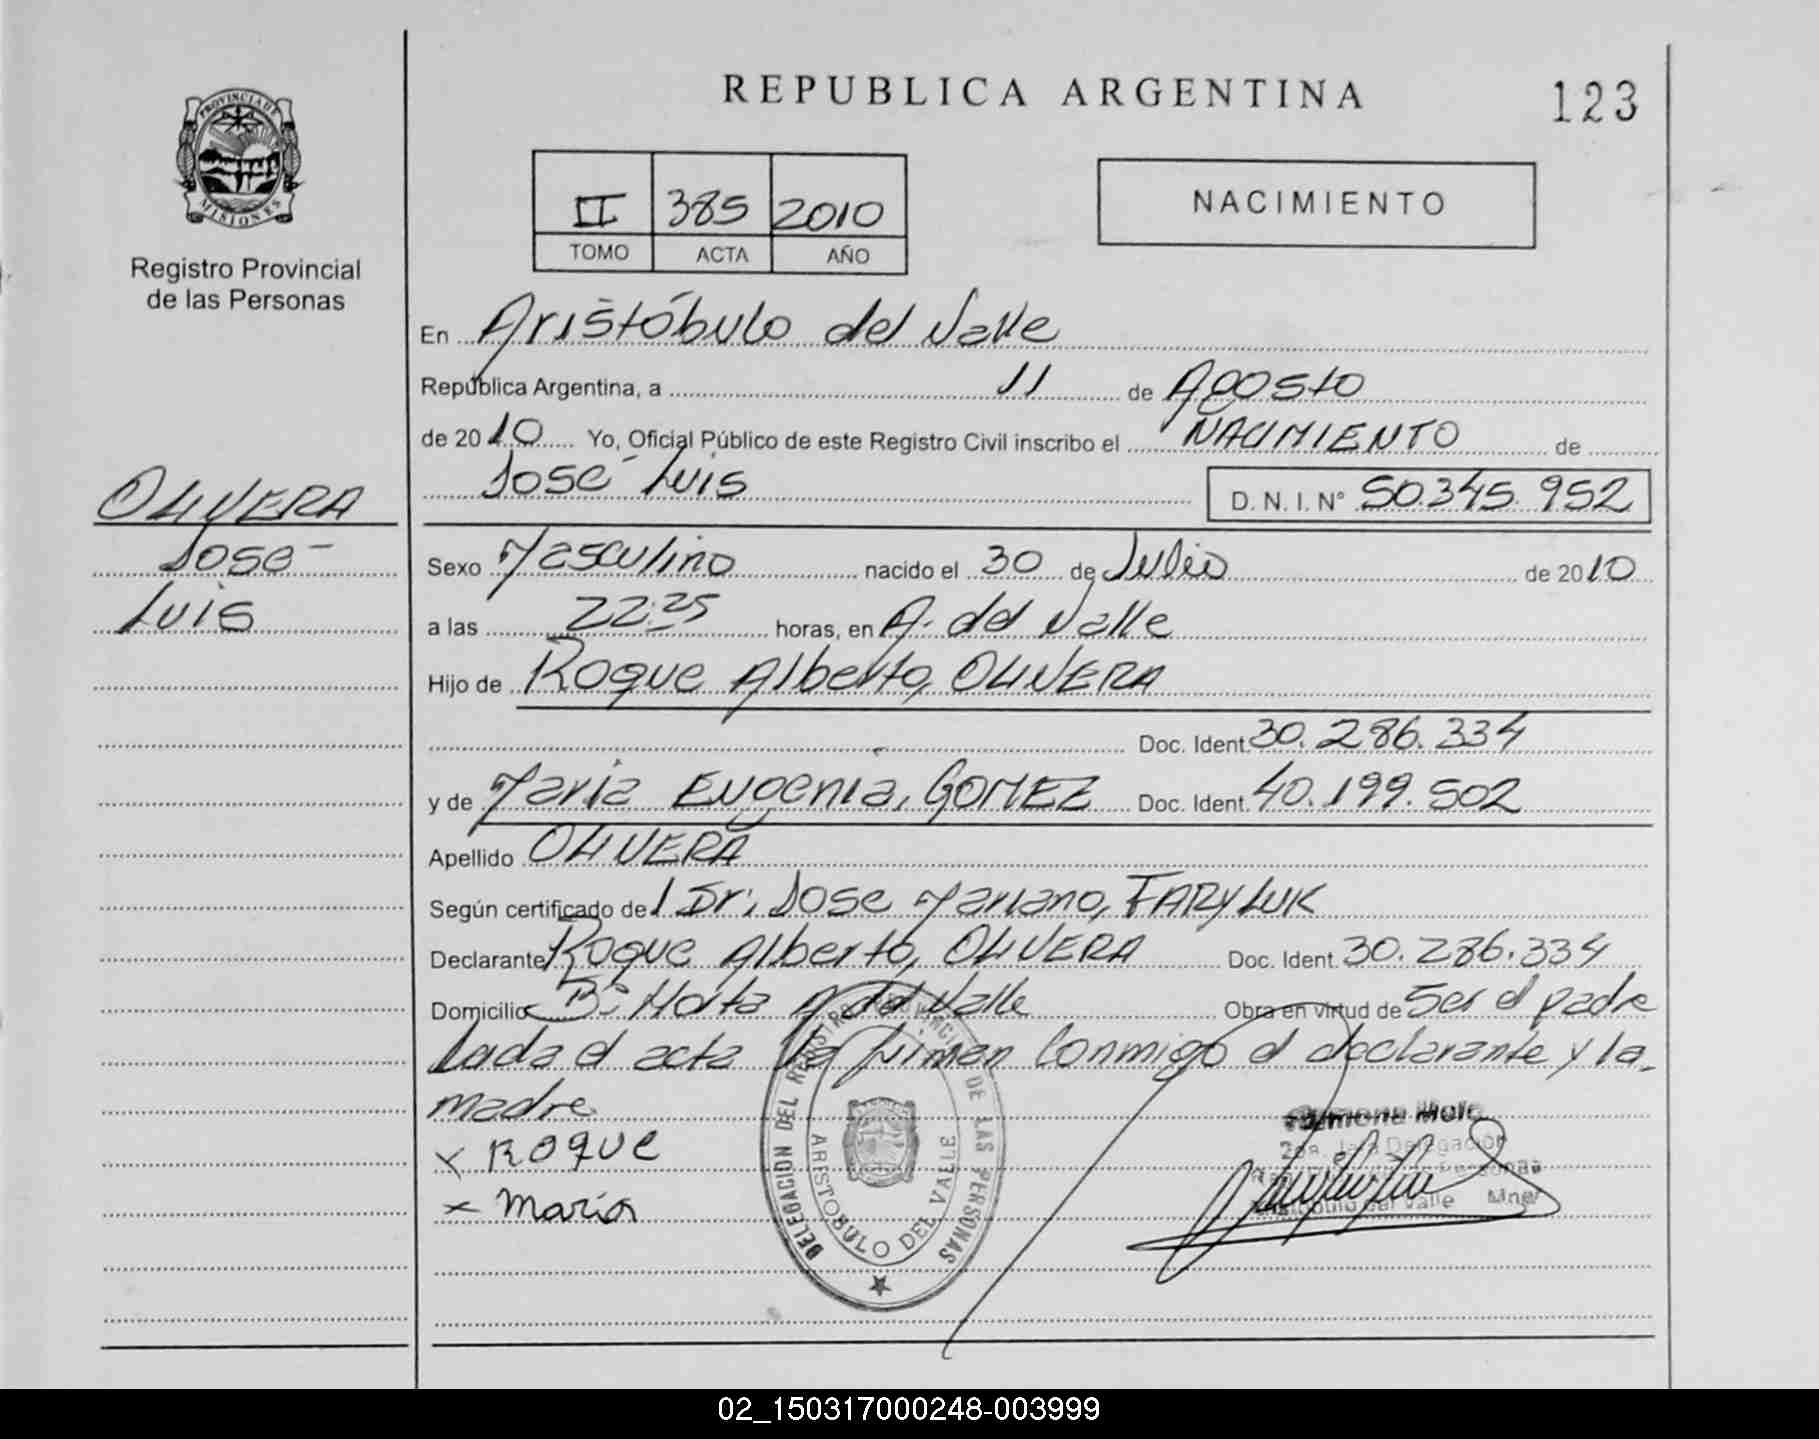 REPUBLICA ARGENTINA
123
PROVINCIA DE
MISIONES
Registro Provincial
de las Personas
II 385 2010
TOMO ACTA AÑO
NACIMIENTO
En Aristóbulo del Valle
República Argentina, a 11 de Agosto
de 2010 Yo, Oficial Público de este Registro Civil inscribo el NACIMIENTO de
José Luis D. N. I. N° 50.345.952
OLIVERA
José
Luis
Sexo Masculino nacido el 30 de Julio de 2010
a las 22:25 horas, en A. del Valle
Hijo de Roque Alberto, OLIVERA
Doc. Ident. 30.286.334
y de Maria Eugenia, GOMEZ Doc. Ident. 40.199.502
Apellido OLIVERA
Según certificado de Dr. Jose Mariano, FARYLUK
Declarante Roque Alberto, OLIVERA Doc. Ident. 30.286.334
Domicilio B° A. del Valle Obra en virtud de Ser el padre
el acta la firman Conmigo el declarante y la
madre
x ROQUE
x Maria
DELEGACION DEL REGISTRO PROVINCIAL DE LAS PERSONAS
ARISTOBULO DEL VALLE
Delegación
Aristobulo del Valle Mnes
02_150317000248-003999